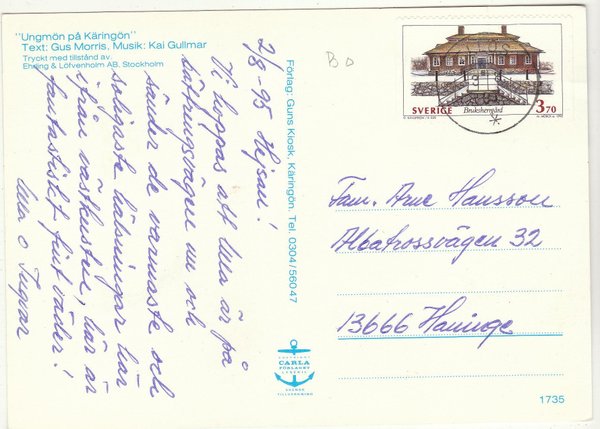 "Ungmön på Käringön"
Text: Gus Morris. Musik: Kai Gullmar
Tryckt med tillstånd av
Ehrling & Löfvenholm AB, Stockholm
2/8-95 Hejsan!
Vi hoppas att Ulla är på
bättringsvägen nu och
sänder de varmaste och
soligaste hälsningar här
ifrån västkusten, här är
fantastiskt fint väder!
Ulla o Ingvar
Förlag: Guns Kiosk, Käringön, Tel. 0304/56047
COPYRIGHT
CARLA
FÖRLAGET
LYSEKIL
SVENSK
TILLVERKNING
B O
SVERIGE
Brukshengård
3,70
Fam. Arne Hansson
Albatrossvägen 32
13666 Haninge
1735